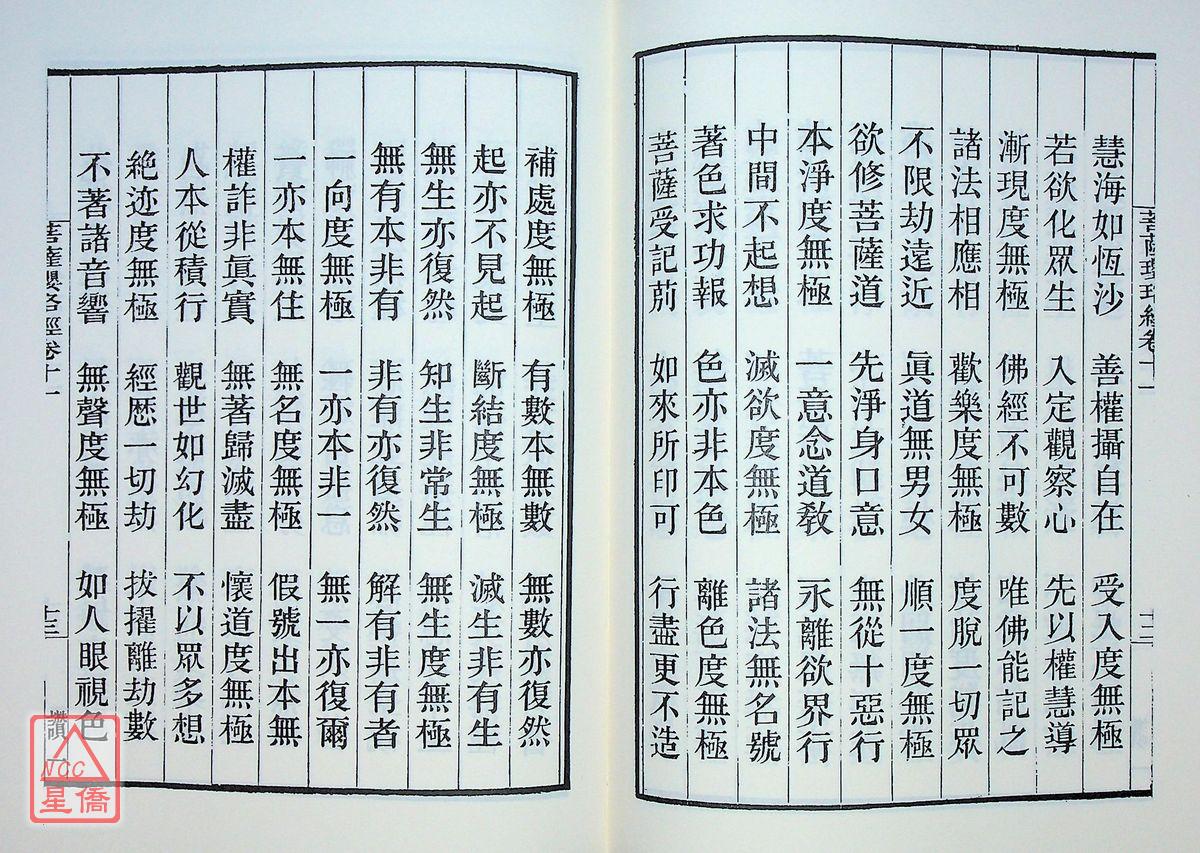 菩薩瓔珞經卷十一
十二
慧海如恆沙 善權攝自在 受入度無極
若欲化眾生 入定觀察心 先以權慧導
漸現度無極 佛經不可數 唯佛能記之
諸法相應相 歡樂度無極 度脫一切眾
不限劫遠近 眞道無男女 順一度無極
欲修菩薩道 先淨身口意 無從十惡行
本淨度無極 一意念道敎 永離欲界行
中間不起想 滅欲度無極 諸法無名號
著色求功報 色亦非本色 離色度無極
菩薩受記莂 如來所印可 行盡更不造
補處度無極 有數本無數 無數亦復然
起亦不見起 斷結度無極 滅生非有生
無生亦復然 知生非常生 無生度無極
無有本非有 非有亦復然 解有非有者
一向度無極 一亦本非一 無一亦復爾
一亦本無住 無名度無極 假號出本無
權詐非眞實 無著歸滅盡 懷道度無極
人本從積行 觀世如幻化 不以眾多想
絕迹度無極 經歷一切劫 拔擢離劫數
不著諸音響 無聲度無極 如人眼視色
菩薩瓔珞經卷十一
十三
讚二
NCC
星僑